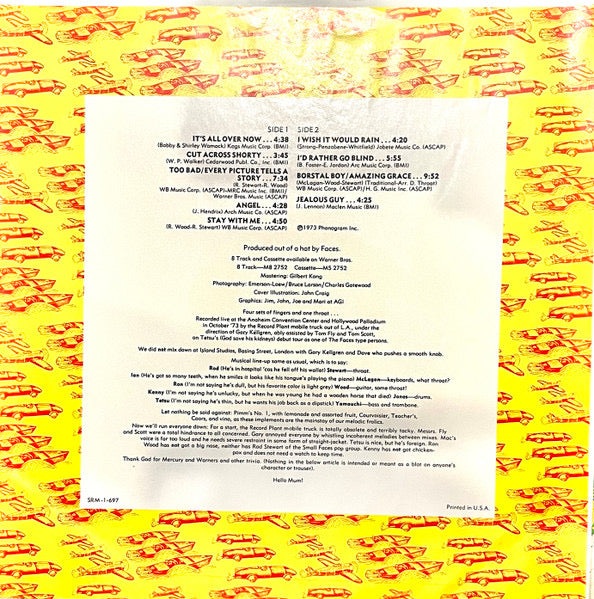 SIDE 1
IT'S ALL OVER NOW . . . 4:38
(Bobby & Shirley Womack) Kags Music Corp. (BMI)
CUT ACROSS SHORTY . . . 3:45
(W. P. Walker) Cedarwood Publ. Co., Inc. (BMI)
TOO BAD/EVERY PICTURE TELLS A
STORY . . . 7:34
(R. Stewart-R. Wood)
WB Music Corp. (ASCAP)-MRC Music Inc. (BMI)/
Warner Bros. Music (ASCAP)
ANGEL . . . 4:28
(J. Hendrix) Arch Music Co. (ASCAP)
STAY WITH ME . . . 4:50
(R. Wood-R. Stewart) WB Music Corp. (ASCAP)
SIDE 2
I WISH IT WOULD RAIN . . . 4:20
(Strong-Penzabene-Whitfield) Jobete Music Co. (ASCAP)
I'D RATHER GO BLIND . . . 5:55
(B. Foster-E. Jordan) Arc Music Corp. (BMI)
BORSTAL BOY/AMAZING GRACE . . . 9:52
(McLagan-Wood-Stewart) (Traditional-Arr. D. Throat)
WB Music Corp. (ASCAP)/H. G. Music Inc. (ASCAP)
JEALOUS GUY . . . 4:25
(J. Lennon) Maclen Music (BMI)
Ⓟ1973 Phonogram Inc.
Produced out of a hat by Faces.
8 Track and Cassette available on Warner Bros.
8 Track—M8 2752 Cassette—M5 2752
Mastering: Gilbert Kong
Photography: Emerson-Loew/Bruce Larson/Charles Gatewood
Cover Illustration: John Craig
Graphics: Jim, John, Joe and Mari at AGI
Four sets of fingers and one throat . . .
Recorded live at the Anaheim Convention Center and Hollywood Palladium
in October '73 by the Record Plant mobile truck out of L.A., under the
direction of Gary Kellgren, ably assisted by Tom Fly and Tom Scott,
on Tetsu's (God save his kidneys) debut tour as one of The Faces type persons.
We did not mix down at Island Studios, Basing Street, London with Gary Kellgren and Dave who pushes a smooth knob.
Musical line-up same as usual, which is to say:
Rod (He's in hospital (cos he fell off his wallet) Stewart—throat.
Ian (He's got so many teeth, when he smiles it looks like his tongue's playing the piano) McLagan—keyboards, what throat?
Ron (I'm not saying he's dull, but his favorite color is light grey) Wood—guitar, some throat!
Kenny (I'm not saying he's unlucky, but when he was young he had a wooden horse that died) Jones—drums.
Tetsu (I'm not saying he's thin, but he wants his job back as a dipstick) Yamauchi—bass and trombone.
Let nothing be said against: Pimm's No. 1, with lemonade and assorted fruit, Courvoisier, Teacher's,
Coors, and vino, as these implements are the mainstay of our melodic frolics.
Now we'll run everyone down: For a start, the Record Plant mobile truck is totally obsolete and terribly tacky. Messrs. Fly
and Scott were a total hindrance to all concerned. Gary annoyed everyone by whistling incoherent melodies between mixes. Mac's
voice is far too loud and he needs severe restraint in some form of straight-jacket. Tetsu is nice, but he's foreign. Ron
Wood has not got a big nose, neither has Rod Stewart of the Small Faces pop group. Kenny has not got chicken-
pox and does not need a watch to keep time.
Thank God for Mercury and Warners and other trivia. (Nothing in the below article is intended or meant as a blot on anyone's
character or trouser).
Hello Mum!
SRM-1-697
Printed in U.S.A.